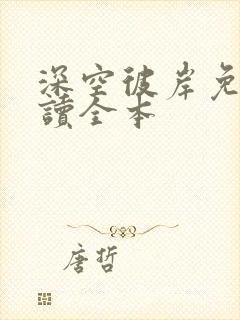 深空彼岸免
讀全本
唐哲